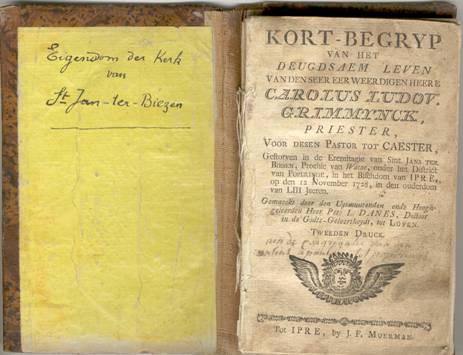 Eigendom der Kerk
van
St Jan-ter-Biezen
KORT-BEGRYP
VAN HET
DEUGDSAEM LEVEN
VAN DEN SEER EERWEERDIGEN HEERE
CAROLUS LUDOV.
GRIMMYNCK,
PRIESTER,
VOOR DESEN PASTOR TOT CAESTER,
Gestorven in de Eremitagie van Sint JANS TER
BIESEN, Prochie van Watou, onder het District
van POPERINGE, in het Bisdom van IPRE,
op den 12 November 1728, in den ouderdom
van LIII Jaeren.
Gemaeckt door den Uytmuntenden ende Hoogh-
geleerden Heer Petr. L. DANES, Doctoor
in de Godts-Geleertheydt, tot LOVEN.
TWEEDEN DRUCK.
Tot IPRE, by J. F. MOERMAN.